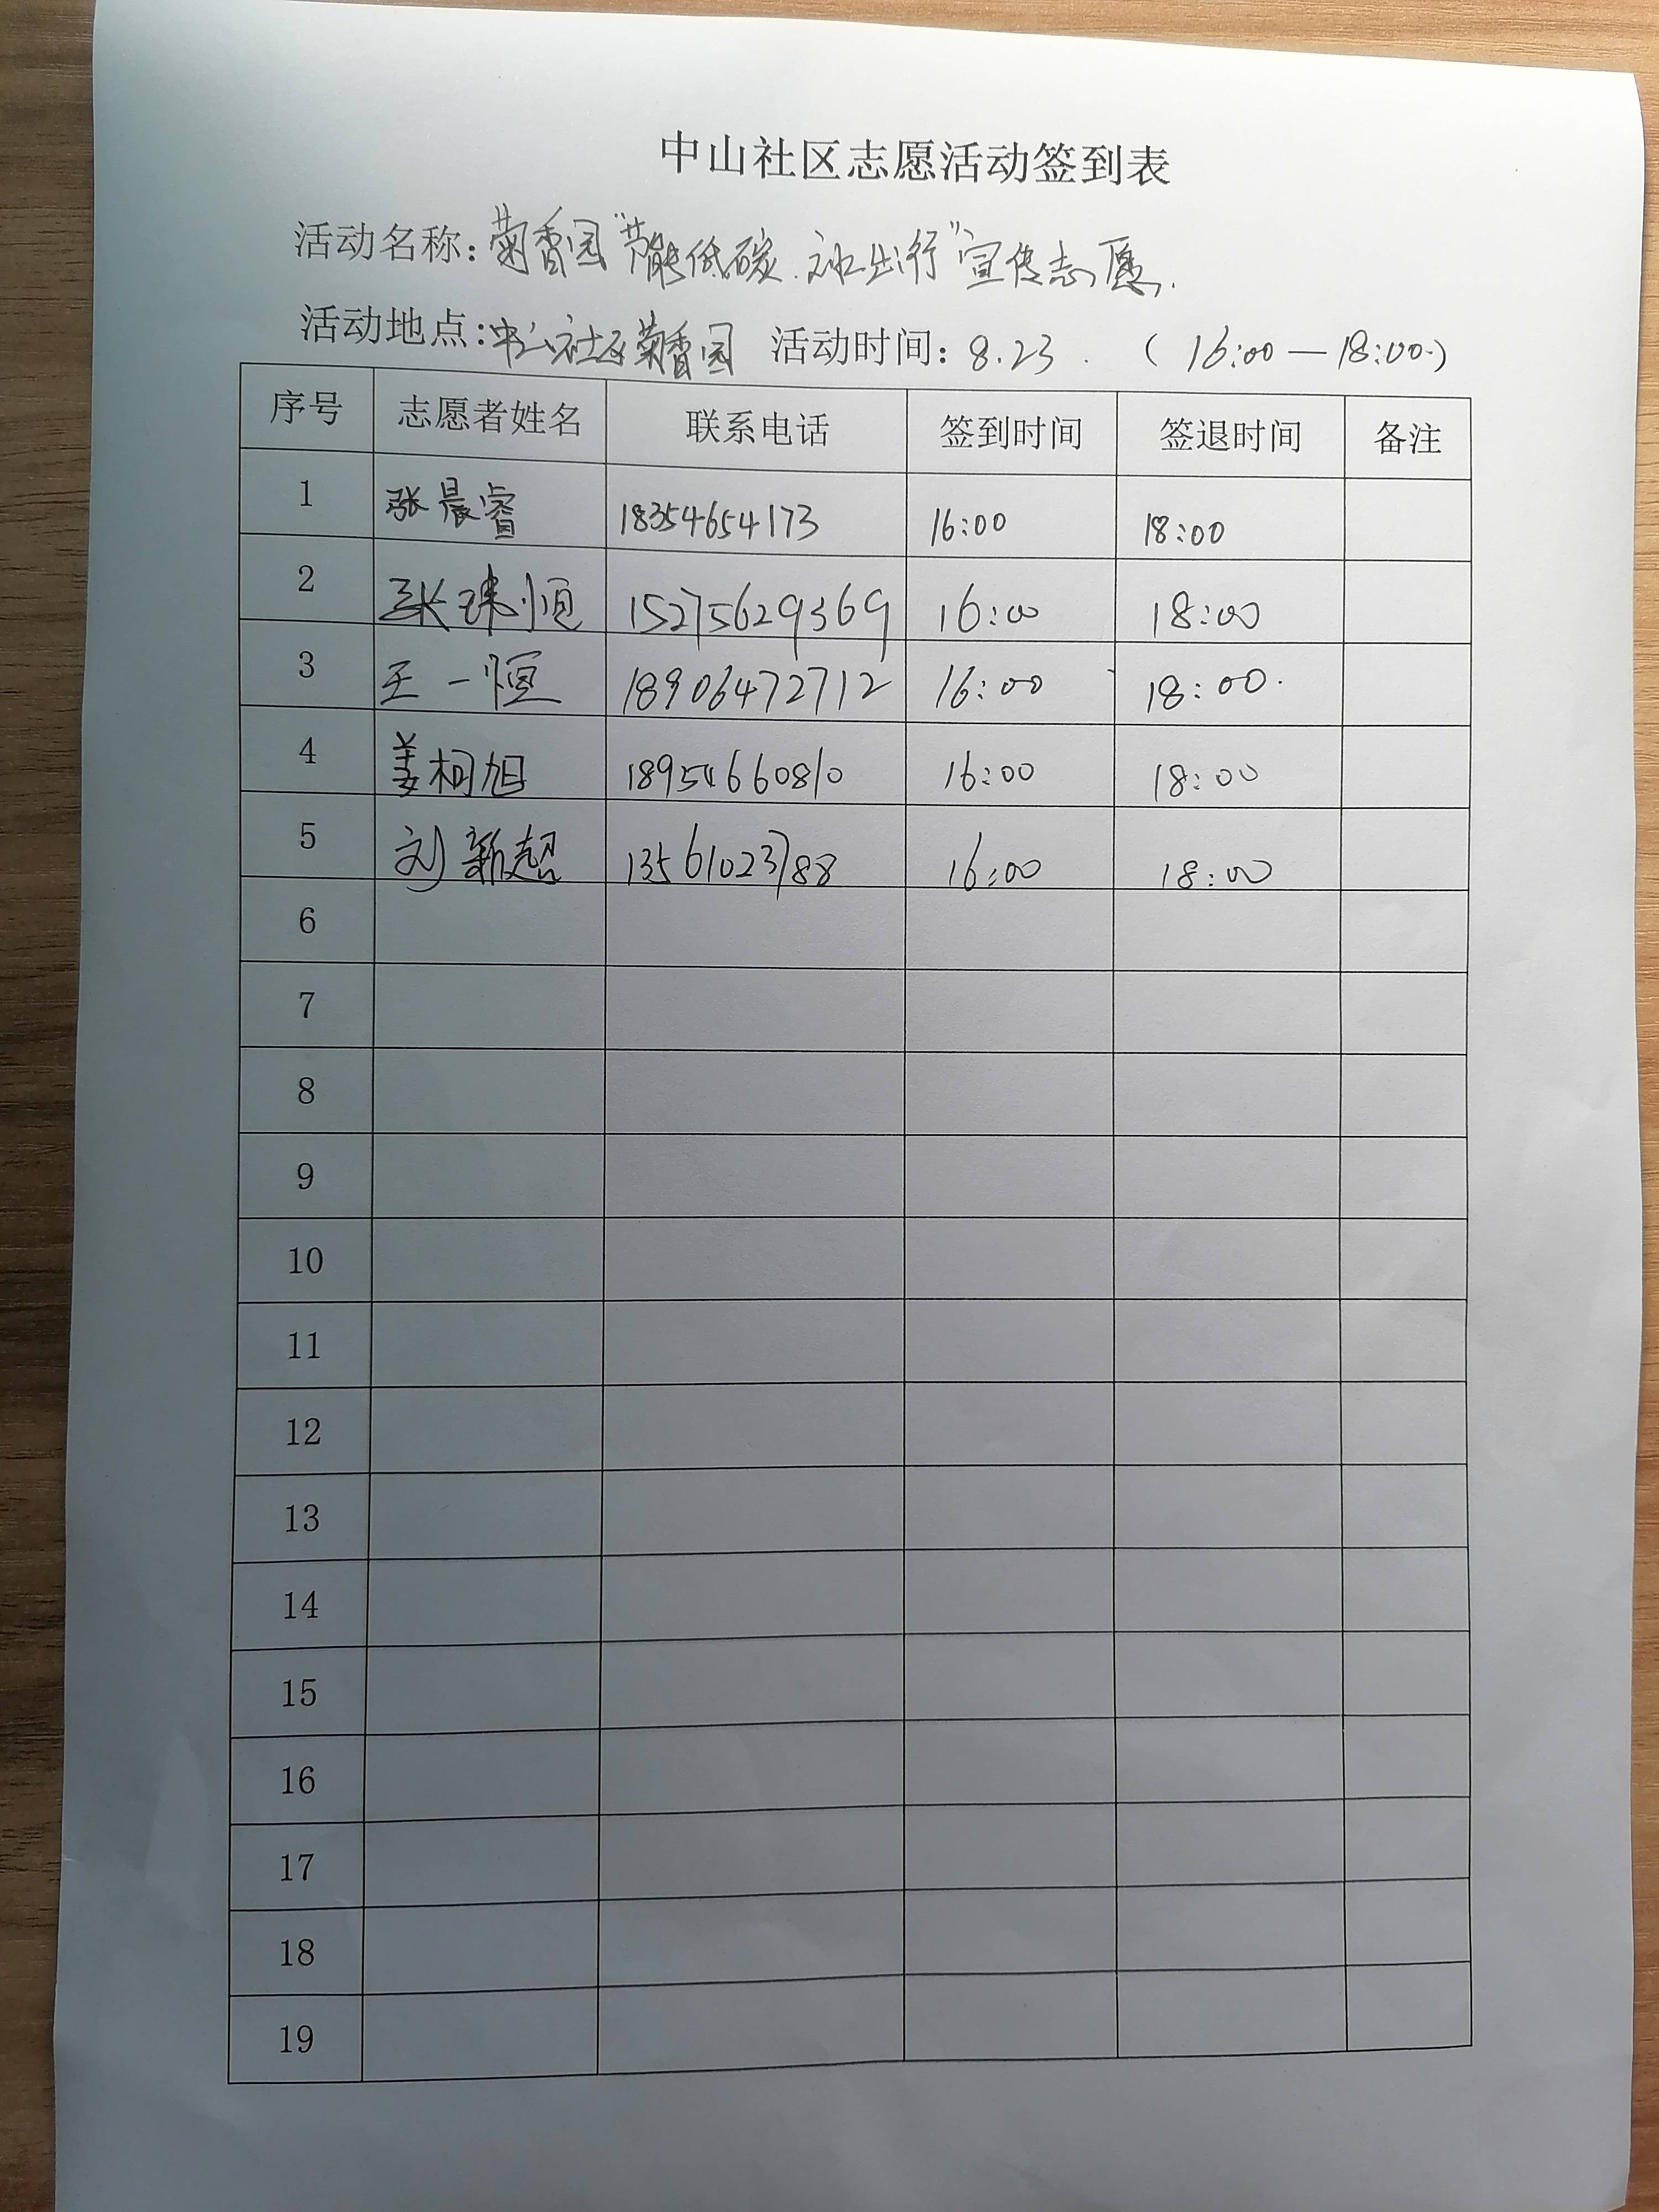 中山社区志愿活动签到表
活动名称:菊香园"节能低碳.文明出行"宣传志愿.
活动地点:中山社区菊香园 活动时间:8.23.(16:00—18:00.)
序号 志愿者姓名 联系电话 签到时间 签退时间 备注
1 张晨睿 18354654173 16:00 18:00
2 张珠恒 15275629369 16:00 18:00
3 王一恒 18906472712 16:00 18:00.
4 姜柯旭 18954660810 16:00 18:00
5 刘新超 13561023788 16:00 18:00
6
7
8
9
10
11
12
13
14
15
16
17
18
19